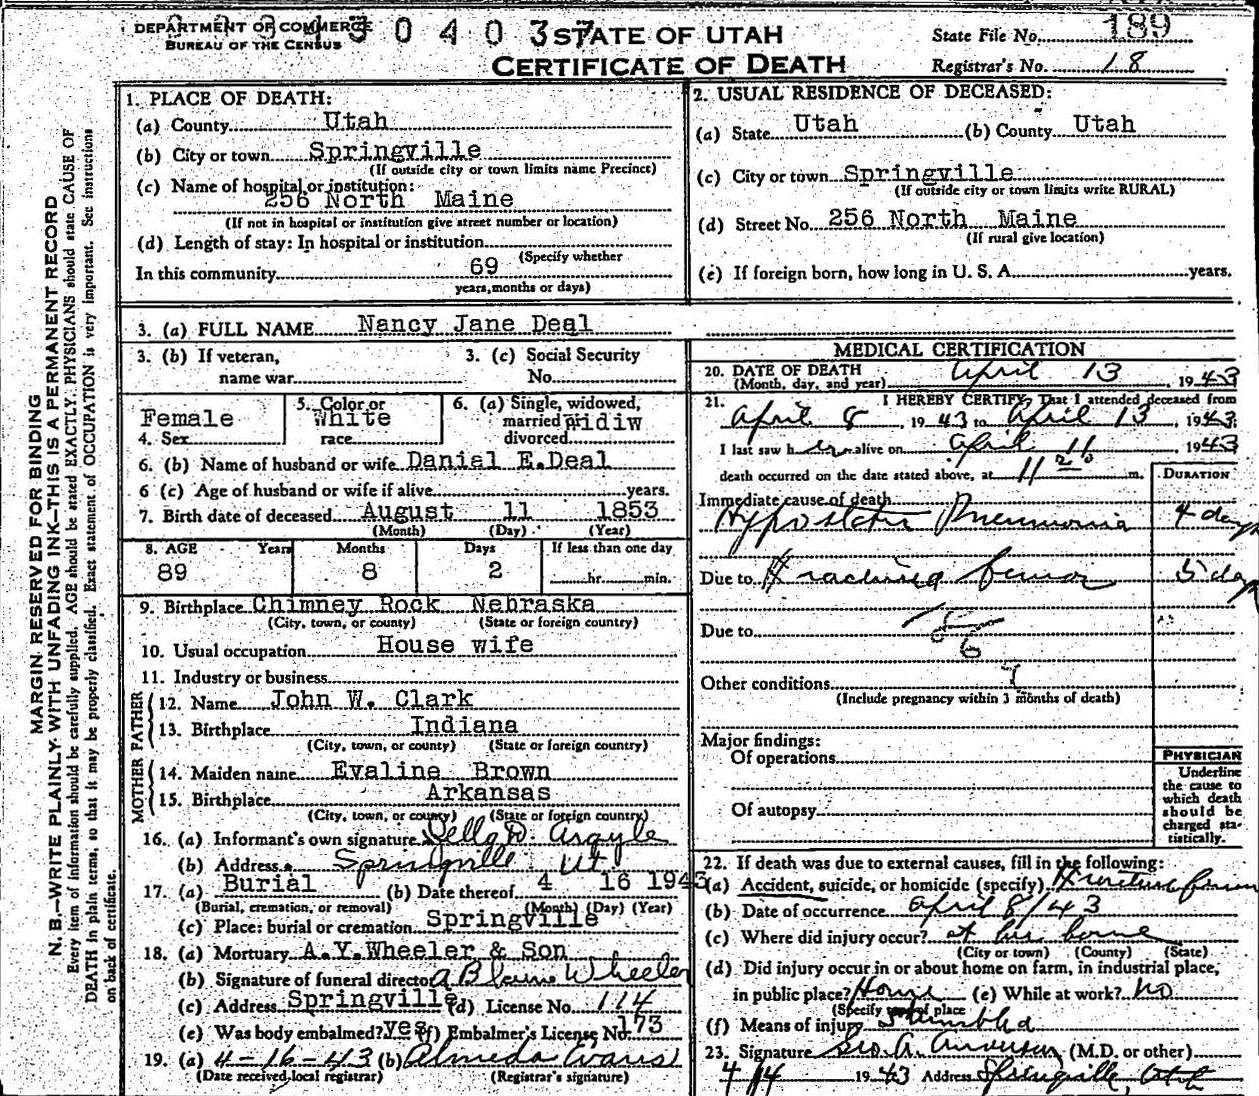 DEPARTMENT OF COMMERCE
BUREAU OF THE CENSUS
0 4 0 3 7
STATE OF UTAH
CERTIFICATE OF DEATH
State File No. 189
Registrar's No. 18
MARGIN RESERVED FOR BINDING
N. B.—WRITE PLAINLY WITH UNFADING INK—THIS IS A PERMANENT RECORD
Every item of information should be carefully supplied. AGE should be stated EXACTLY. PHYSICIANS should state CAUSE OF
DEATH in plain terms, so that it may be properly classified. Exact statement of OCCUPATION is very important. See instructions
on back of certificate.
1. PLACE OF DEATH:
(a) County Utah
(b) City or town Springville
(If outside city or town limits name Precinct)
(c) Name of hospital or institution:
256 North Maine
(If not in hospital or institution give street number or location)
(d) Length of stay: In hospital or institution
(Specify whether
In this community 69
years, months or days)
2. USUAL RESIDENCE OF DECEASED:
(a) State Utah (b) County Utah
(c) City or town Springville
(If outside city or town limits write RURAL)
(d) Street No. 256 North Maine
(If rural give location)
(e) If foreign born, how long in U. S. A. years.
3. (a) FULL NAME Nancy Jane Deal
3. (b) If veteran, name war
3. (c) Social Security No.
Female
4. Sex
5. Color or race White
6. (a) Single, widowed, married divorced widiw
6. (b) Name of husband or wife Danial E.Deal
6 (c) Age of husband or wife if alive years.
7. Birth date of deceased August 11 1853
(Month) (Day) (Year)
8. AGE Years Months Days If less than one day
89 8 2 hr. min.
9. Birthplace Chimney Rock Nebraska
(City, town, or county) (State or foreign country)
10. Usual occupation House wife
11. Industry or business
FATHER
12. Name John W. Clark
13. Birthplace Indiana
(City, town, or county) (State or foreign country)
MOTHER
14. Maiden name Evaline Brown
15. Birthplace Arkansas
(City, town, or county) (State or foreign country)
16. (a) Informant's own signature Della D. Argyle
(b) Address Springville Ut.
17. (a) Burial (b) Date thereof 4 16 1943
(Burial, cremation, or removal) (Month) (Day) (Year)
(c) Place: burial or cremation Springville
18. (a) Mortuary A.Y.Wheeler & Son
(b) Signature of funeral director A Blaine Wheeler
(c) Address Springville (d) License No. 114
(e) Was body embalmed? yes (f) Embalmer's License No. 173
19. (a) 4-16-43 (b) Almeda Evans
(Date received local registrar) (Registrar's signature)
MEDICAL CERTIFICATION
20. DATE OF DEATH April 13, 1943
(Month, day, and year)
21. I HEREBY CERTIFY, That I attended deceased from
April 8, 1943 to April 13, 1943.
I last saw her alive on April 11 1943
death occurred on the date stated above, at 11 20 m.
DURATION
Immediate cause of death
Hypostatic Pneumonia 4 days
Due to Fractured femur 5 days
Due to
Other conditions
(Include pregnancy within 3 months of death)
Major findings:
Of operations
Of autopsy
PHYSICIAN
Underline
the cause to
which death
should be
charged sta-
tistically.
22. If death was due to external causes, fill in the following:
(a) Accident, suicide, or homicide (specify) Fracture femur
(b) Date of occurrence April 8/43
(c) Where did injury occur? at her home
(City or town) (County) (State)
(d) Did injury occur in or about home on farm, in industrial place,
in public place? Home (e) While at work? No
(Specify type of place)
(f) Means of injury Stumbled
23. Signature Geo. A. Anderson (M.D. or other)
4/14 1943 Address Springville, Utah